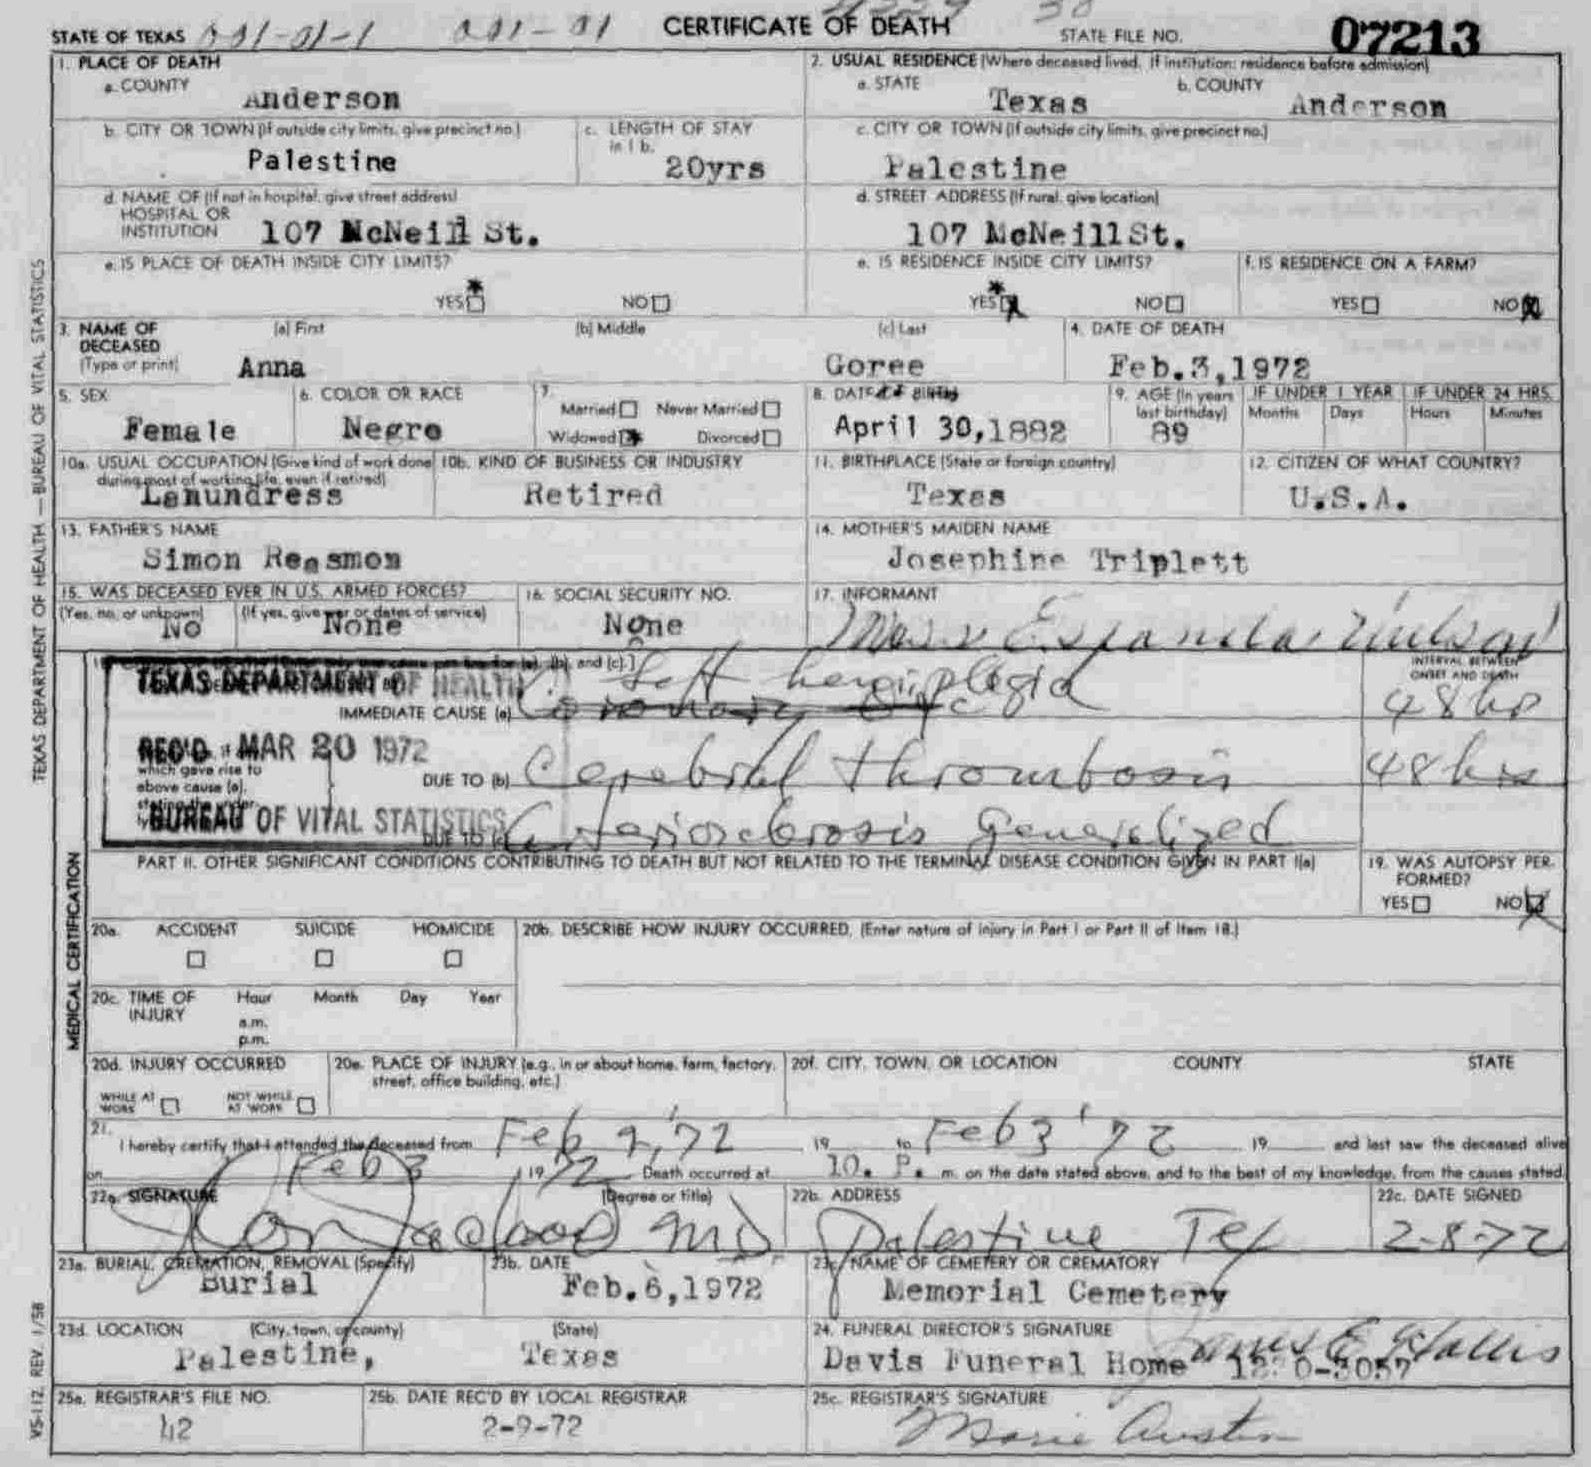 CERTIFICATE OF DEATH
STATE OF TEXAS
STATE FILE NO. 07213
1. PLACE OF DEATH
a. COUNTY
Anderson
2. USUAL RESIDENCE (Where deceased lived. If institution: residence before admission)
a. STATE b. COUNTY
Texas Anderson
b. CITY OR TOWN (If outside city limits, give precinct no.)
Palestine
c. LENGTH OF STAY
in 1 b.
20yrs
c. CITY OR TOWN (If outside city limits, give precinct no.)
Palestine
d. NAME OF (If not in hospital, give street address)
HOSPITAL OR
INSTITUTION 107 McNeill St.
d. STREET ADDRESS (If rural, give location)
107 McNeillSt.
e. IS PLACE OF DEATH INSIDE CITY LIMITS?
YES NO
e. IS RESIDENCE INSIDE CITY LIMITS?
YES NO
f. IS RESIDENCE ON A FARM?
YES NO
3. NAME OF
DECEASED
(Type or print)
(a) First (b) Middle (c) Last
Anna Goree
4. DATE OF DEATH
Feb.3,1972
5. SEX
Female
6. COLOR OR RACE
Negro
7.
Married Never Married
Widowed Divorced
8. DATE OF BIRTH
April 30,1882
9. AGE (In years
last birthday)
89
IF UNDER 1 YEAR IF UNDER 24 HRS.
Months Days Hours Minutes
10a. USUAL OCCUPATION (Give kind of work done
during most of working life, even if retired)
Lanundress
10b. KIND OF BUSINESS OR INDUSTRY
Retired
11. BIRTHPLACE (State or foreign country)
Texas
12. CITIZEN OF WHAT COUNTRY?
U.S.A.
13. FATHER'S NAME
Simon
14. MOTHER'S MAIDEN NAME
Josephine Triplett
15. WAS DECEASED EVER IN U.S. ARMED FORCES?
(Yes, no, or unknown) (If yes, give war or dates of service)
No None
16. SOCIAL SECURITY NO.
None
17. INFORMANT
and (c).]
TEXAS DEPARTMENT OF HEALTH
Left hemiplegia
IMMEDIATE CAUSE (a)
INTERVAL BETWEEN
ONSET AND DEATH
48 hr
REC'D MAR 20 1972
which gave rise to
above cause (a),
DUE TO (b) Cerebral thrombosis 48 hrs
BUREAU OF VITAL STATISTICS
DUE TO Arteriosclerosis Generalized
PART II. OTHER SIGNIFICANT CONDITIONS CONTRIBUTING TO DEATH BUT NOT RELATED TO THE TERMINAL DISEASE CONDITION GIVEN IN PART I(a)
19. WAS AUTOPSY PER-
FORMED?
YES NO
20a. ACCIDENT SUICIDE HOMICIDE
20b. DESCRIBE HOW INJURY OCCURRED. (Enter nature of injury in Part I or Part II of Item 18.)
20c. TIME OF
INJURY
Hour Month Day Year
a.m.
p.m.
20d. INJURY OCCURRED
WHILE AT
WORK
NOT WHILE
AT WORK
20e. PLACE OF INJURY (e.g., in or about home, farm, factory,
street, office building, etc.)
20f. CITY, TOWN, OR LOCATION COUNTY STATE
21.
I hereby certify that I attended the deceased from Feb 2, '72 19 to Feb 3 '72 19 and last saw the deceased alive
on Feb 3 1972 Death occurred at 10. P. m. on the date stated above, and to the best of my knowledge, from the causes stated.
22a. SIGNATURE (Degree or title)
MD
22b. ADDRESS
Palestine Tex
22c. DATE SIGNED
2-8-72
23a. BURIAL, CREMATION, REMOVAL (Specify)
Burial
23b. DATE
Feb.6,1972
23c. NAME OF CEMETERY OR CREMATORY
Memorial Cemetery
23d. LOCATION (City, town, or county) (State)
Palestine, Texas
24. FUNERAL DIRECTOR'S SIGNATURE
James E Hallis
Davis Funeral Home
25a. REGISTRAR'S FILE NO.
42
25b. DATE REC'D BY LOCAL REGISTRAR
2-9-72
25c. REGISTRAR'S SIGNATURE
Marie Austin
TEXAS DEPARTMENT OF HEALTH — BUREAU OF VITAL STATISTICS
MEDICAL CERTIFICATION
VS-112 REV. 1/58